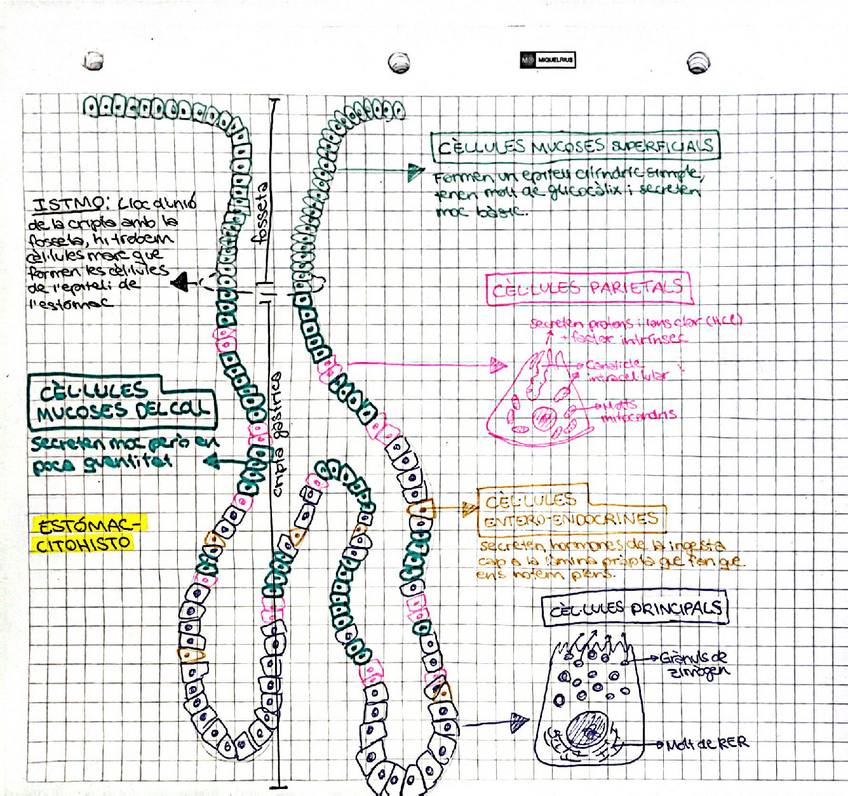 MIQUELRIUS
CÈL·LULES MUCOSES SUPERFICIALS
Formen un epiteli cilíndric simple,
tenen molt de glicocàlix i secreten
moc bàsic.
fosseta
ISTMO: Lloc d'unió
de la cripta amb la
fosseta, hi trobem
cèl·lules mare que
formen les cèl·lules
de l'epiteli de
l'estómac
CÈL·LULES PARIETALS
Secreten protons i ions clor (HCl)
+ factor intrínsec
Canalicle
intracel·lular
Molts
mitocondris
CÈL·LULES
MUCOSES DEL COLL
Secreten moc però en
poca quantitat
cripta gàstrica
ESTÓMAC-
CITOHISTO
CÈL·LULES
ENTERO-ENDOCRINES
secreten hormones de la ingesta
cap a la làmina pròpia que fan que
ens notem plens.
CÈL·LULES PRINCIPALS
Grànuls de
zimògen
Molt de RER